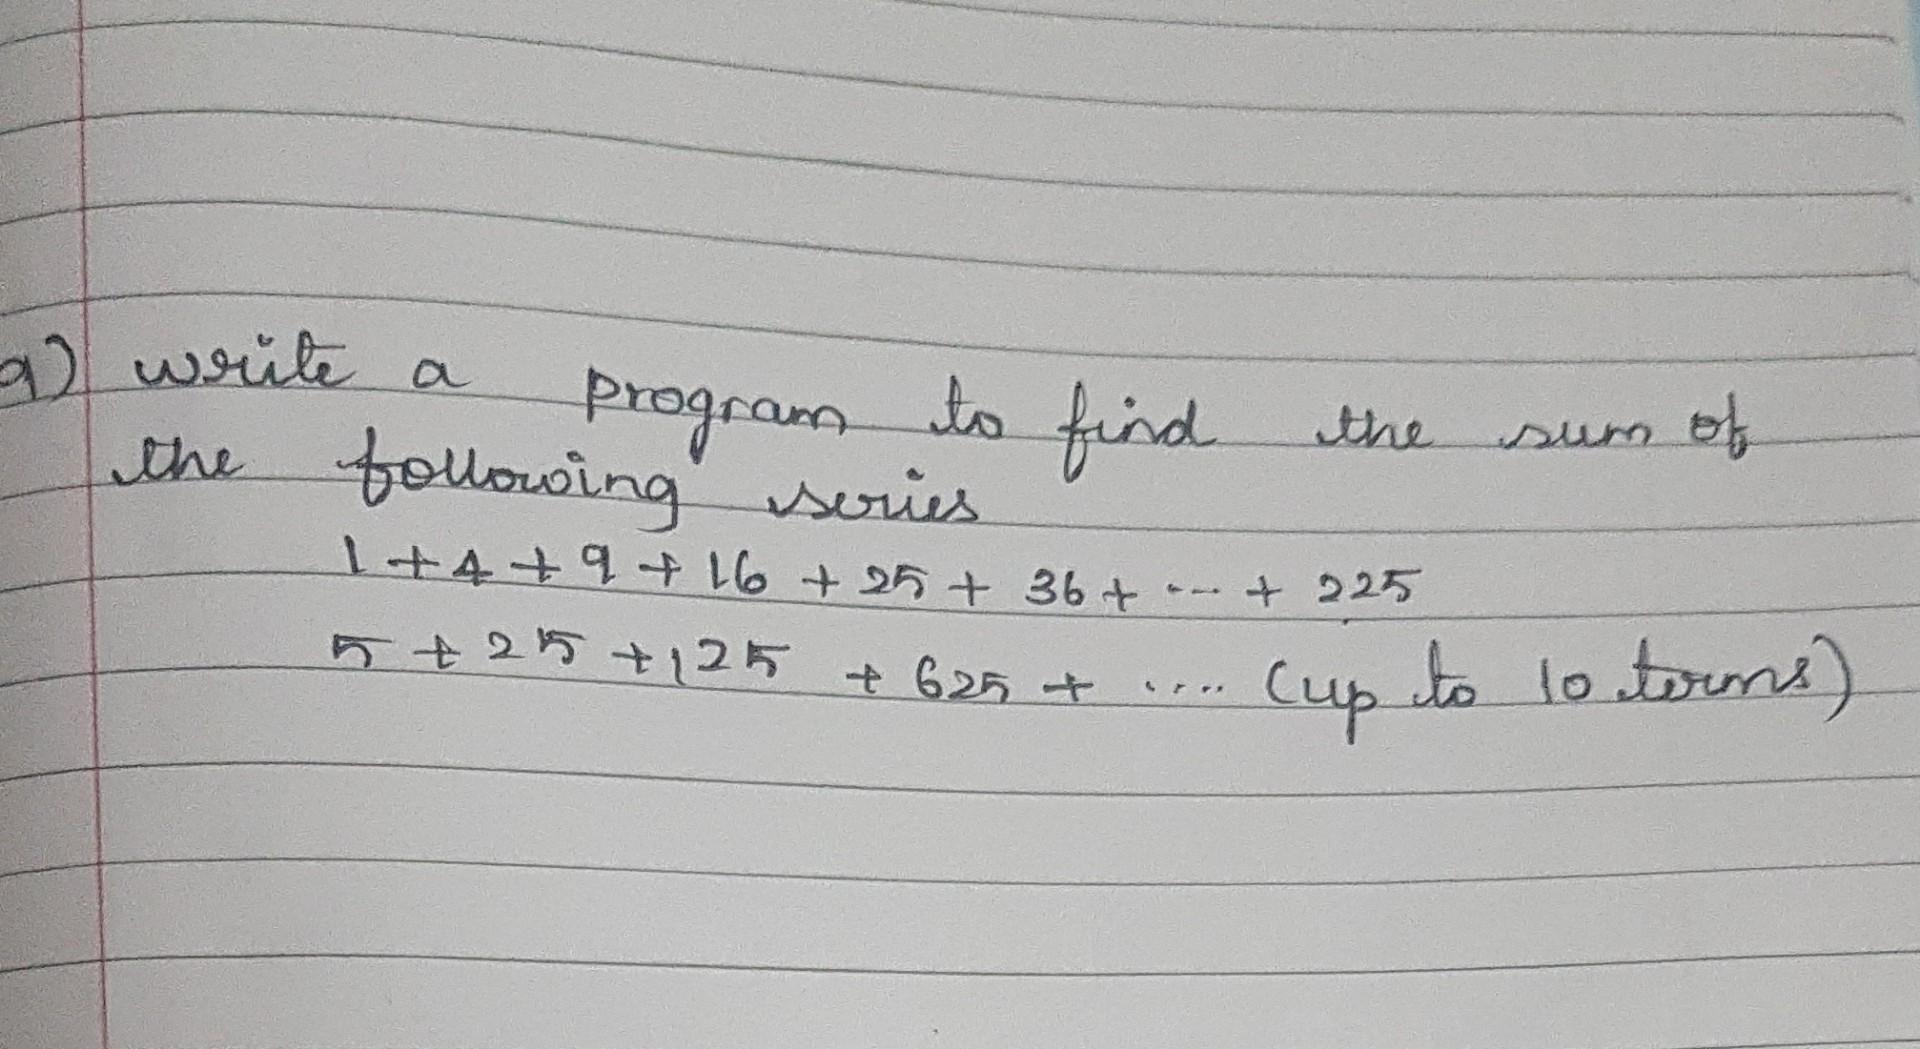 a) write a program to find the sum of
the following series
1 + 4 + 9 + 16 + 25 + 36 + ... + 225
5 + 25 + 125 + 625 + .... (up to 10 terms)